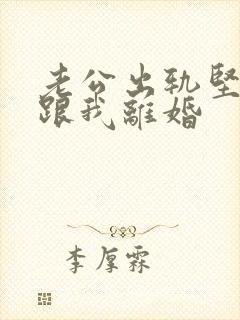 老公出轨堅
跟我離婚
李厚霖